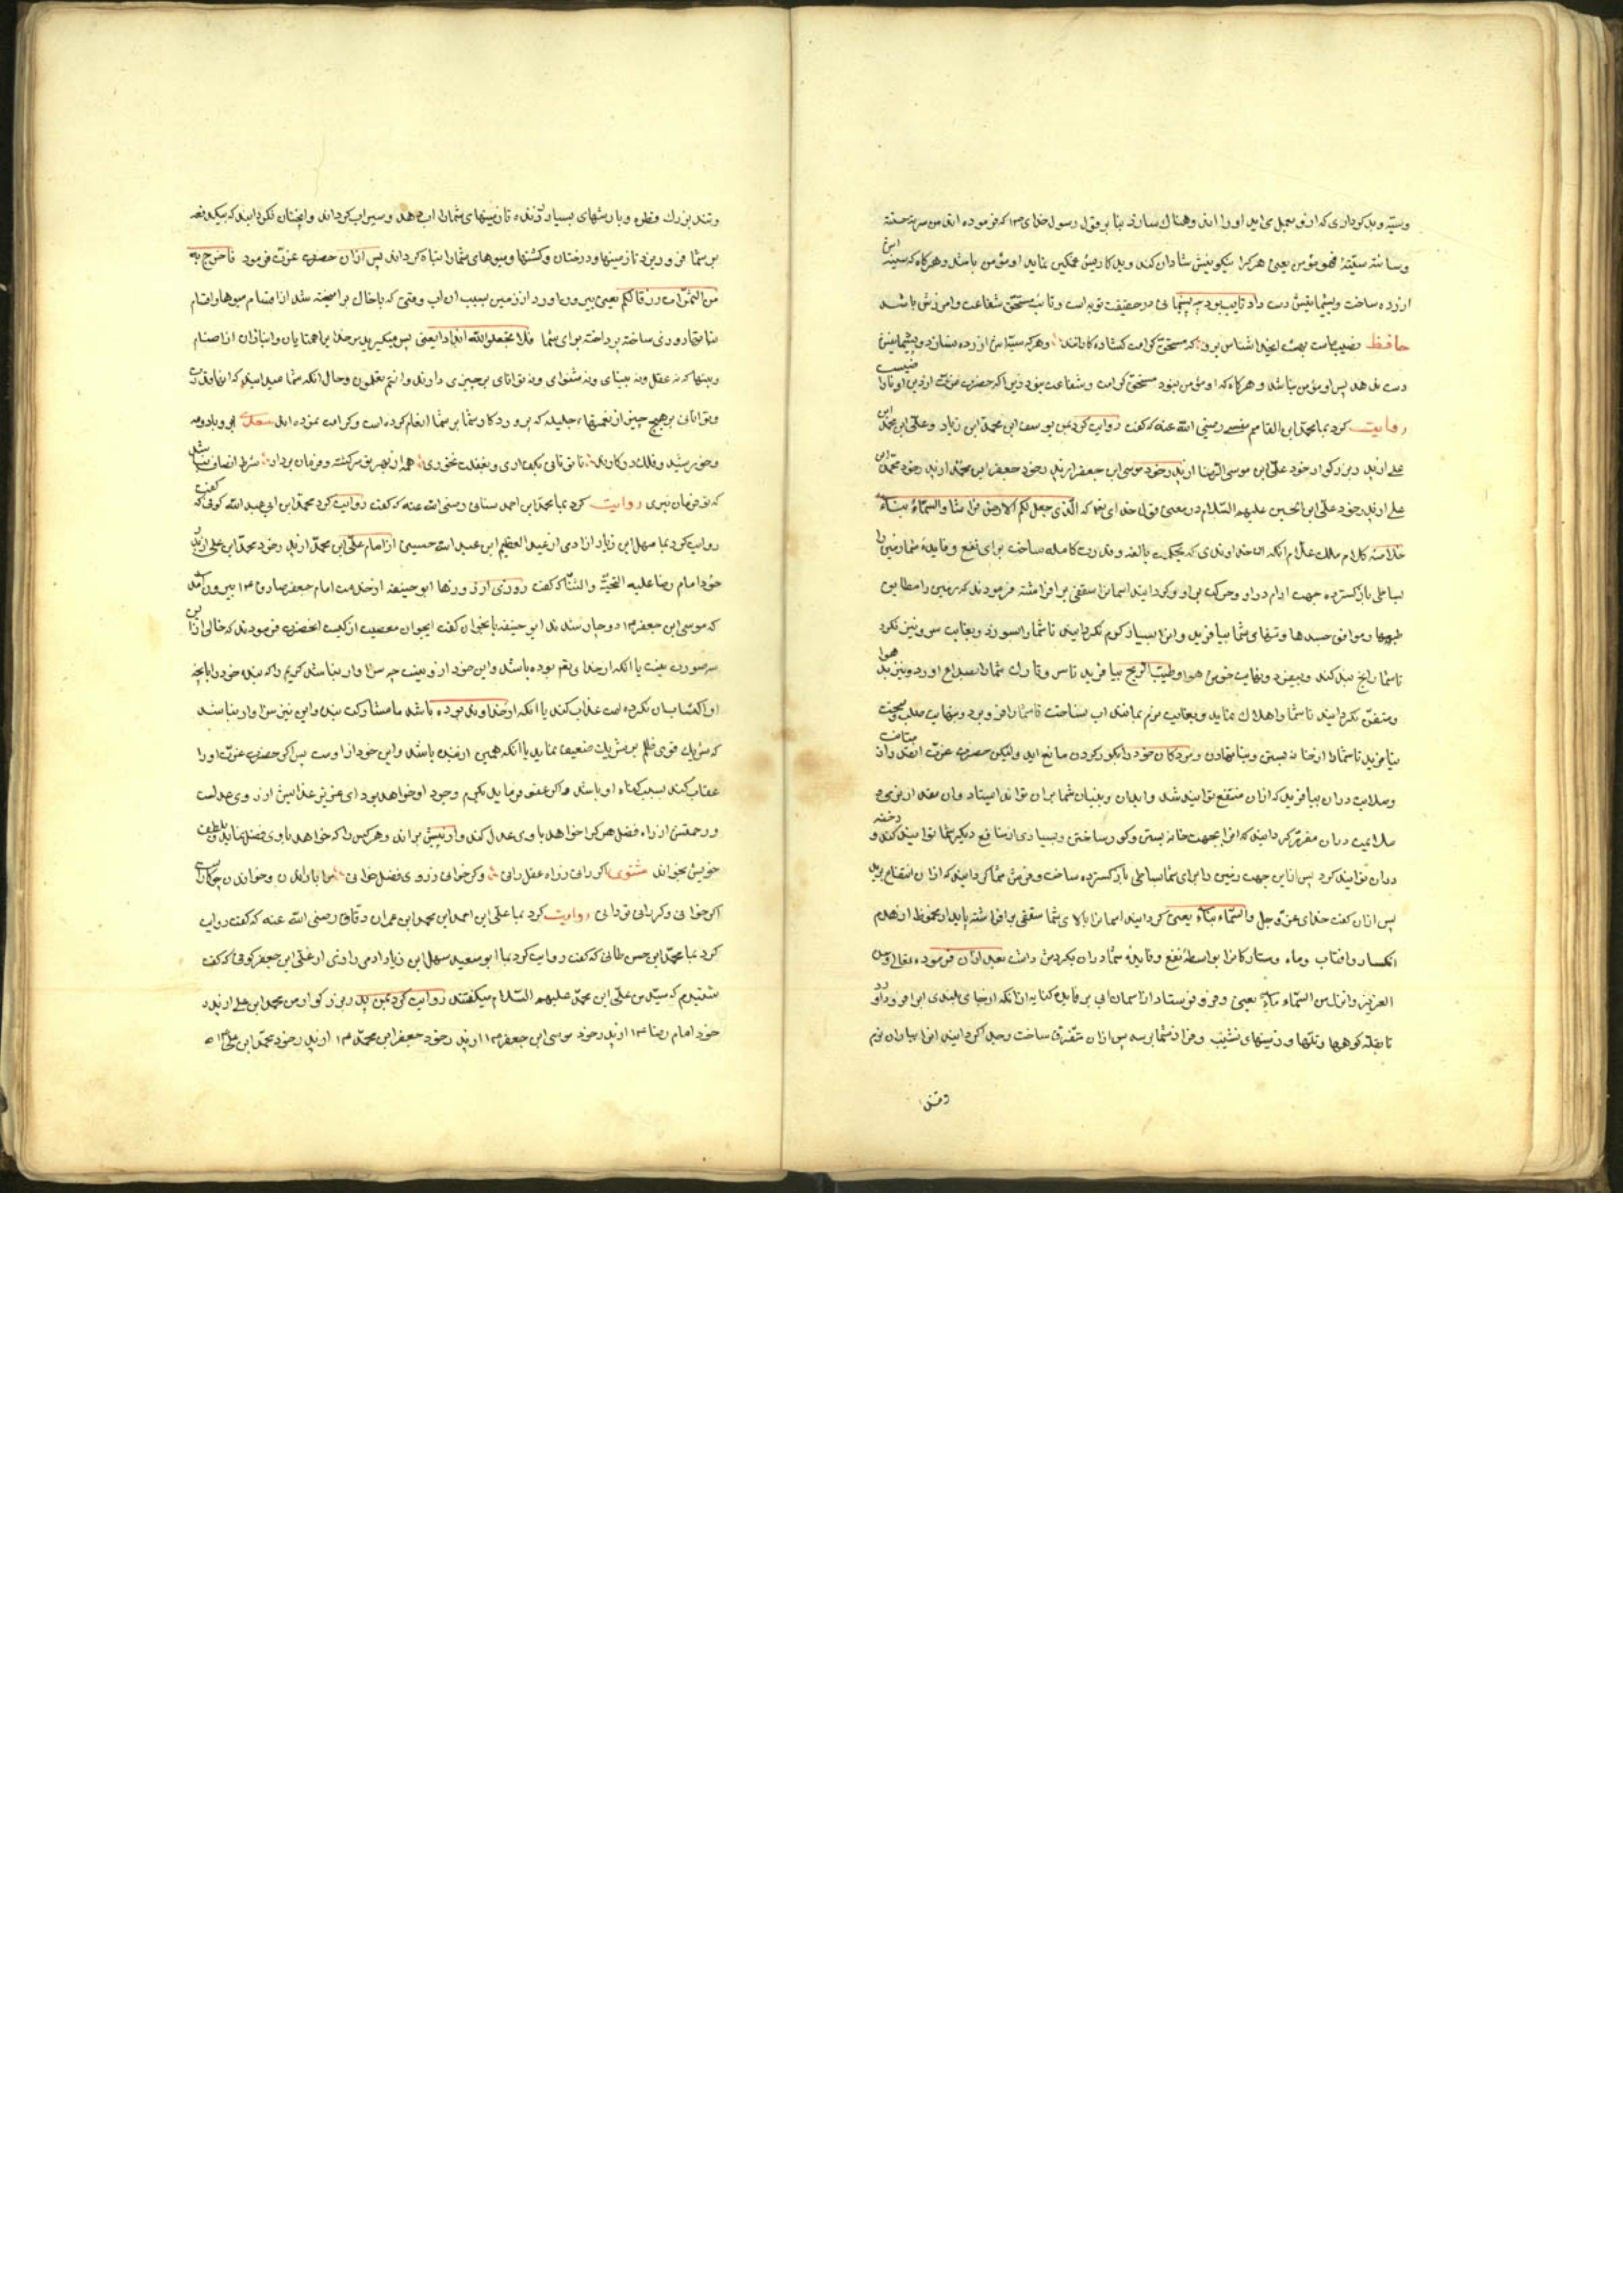 وسیّه وبدکرداری که ازو بعمل می اید او را اند وهناك سازد بنا بر قول رسول خدای ۱۳ که فرموده اند من سرته حسنة
وسائته سیّئة فهو مؤمن یعنی هرکرا نیکوییش شادان کند وبدکاریش غمکین نماید او مؤمن باشد وهرکاه که سیئه اش
ازرده ساخت وپشیمانیش دست داد تایب بود چه پشیمانی در حقیقت توبه است وتائب مستحق شفاعت وامرزش باشد
حافظ نصیب ماست بهشت ایخدا شناس برو که مستحق کرامت کناه کارانند وهرکه سیّئه اش ازرده نسازد وپشیمانیش
دست ندهد پس او مؤمن نباشد و هرکاه که او مؤمن نبود مستحق کرامت وشفاعت نبود زیرا که حضرت عزت ازدین او نا راضیست
روایت کرد بما محمد ابن القاسم مفسر رضی الله عنه که کفت روایت کرد بمن یوسف ابن محمد ابن زیاد وعلی ابن محمد ابن
علی از پدر بزرکوار خود علی ابن موسی الرضا از پدر خود موسی ابن جعفر از پدر خود جعفر ابن محمد از پدر خود محمد ابن
علی از پدر خود علی ابن الحسین علیهم السلام در معنی قول خدای تعه که الّذی جعل لکم الارض فراشا والسّماء بناء
خلاصه کلام ملك علام انکه ان خداوندی که بحکمت بالغه وقدرت کامله ساخت برای نفع وفایده شما زمین را
بساطی باز کسترده جهت ارام
طبعها وموافق جسدها وتنهای شما بیافرید وانرا بسیار کرم نکردانید تا شما را بسوزد وبغایت سرد نیز نکرد
تا شما را یخ بند کند وبیفسرد وبغایت خوش هوا وطیّب الریح نیافرید تا سر وتارك شما را بصداع اورد ونیز بد هوا
ومتعفن نکردانید تا شما را هلاك نماید وبغایت نرم بمانند اب نساخت تا شما را فرو برد وبنهایت صلب وسخت
نیافرید تا شما را از خانه بستن وبنا نهادن ومردکان خود را بکور کردن مانع اید ولیکن حضرت عزت انقدر از متانت
وصلابت دران بیافرید که ازان منتفع توانید شد وابدان وبنیان شما بران تواند ایستاد وان مقدار نرمی و
ملایمت دران مقرر کردانید که انرا بجهت خانه بستن وکور ساختن وبسیاری از منافع دیکر شما توانید کند و رخنه
دران توانید کرد پس ازاین جهت زمین را برای شما بساطی باز کسترده ساخت وفرش شما کردانید که ازان انتفاع برید
پس ازان کفت خدای عز وجل والسّماء بناء یعنی کردانید اسمانرا بالای شما سقفی برافراشته پایدار محفوظ از هدم
انکسار وافتاب وماه وستارکانرا بواسطه نفع وفایده شما دران بکردش داشت بعد ازان فرموده تعالی
العزیز وانزل من السّماء ماء یعنی وفرو فرستاد از اسمان ابی
تا بقله کوهها وتلها وزمینهای نشیب وفراز شما برسد پس ازان متفرق ساخت
وتند
وتند بزرك قطره وبارشهای بسیار تا زمینهای شما را اب دهد وسیراب کرداند وانچنان نکردانید که بیکدفعه
بر شما فرو ریزد تا زمینها ودرختان وکشتها ومیوهای شما را تباه کرداند پس ازان حضرت عزت فرمود فاخرج به
من الثمرات رزقا لکم یعنی بیرون اورد از زمین بسبب ان اب وقتی که باخاك برامیخته شد از اقسام میوها واقسام
نباتها روزی ساخته پرداخته برای شما فلا تجعلوا لله اندادا یعنی پس میکیرید بر خدایرا همتایان وانبازان از اصنام
وبتها که نه عقل ونه بینای ونه شنوای ونه توانای برچیزی دارند وانتم تعلمون وحال انکه شما میدانید که
وتوانائی بر هیچ چیز از نعمتهاء جلیله که پروردکار شما بر شما انعام کرده است وکرامت نموده اند سعدی ابر وباد ومه
وخورشید وفلك درکارند تا تو نانی بکف اری وبغفلت نخوری همه از بهر تو سرکشته وفرمان بردار شرط انصاف نباشد
که تو فرمان نبری روایت کرد بما محمد ابن احمد سنانی رضی الله عنه که کفت روایت کرد محمد ابن ابی عبدالله کوفی که کفت
روایت کرد بما سهل ابن زیاد ازادمی از عبد العظیم ابن عبدالله حسینی از امام علی ابن محمد از پدر خود محمد ابن علی از پدر
خود امام رضا علیه التحیة والثنا که کفت روزی از روزها ابو حنیفه از خدمت امام جعفر صادق ۱۳ بیرون امد
که موسی ابن جعفر ۱۳ دوچار شدند ابو حنیفه باتخوان کفت ایجوان معصیت از کیست انحضرت فرمودند که خالی ازاین
سه صورت نیست یا انکه از خدای تعه بوده باشد واین خود ازو نیست چه سزاوار نباشد کریم را که بنده خود را بانچه
او اکتساب ان نکرده است عذاب کند یا انکه از خداوند بوده باشد با مشارکت بنده واین نیز سزاوار نباشد
که شریك قوی ظلم بر شریك ضعیف نماید یا انکه همین از بنده باشد واین خود از اوست پس اکر حضرت عزت او را
عقاب کند بسبب کناه او باشد واکر عفو فرماید بکرم وجود او خواهد بود ای عزیز عذابش از روی عدلست
ورحمتش از راه فضل هرکرا خواهد باوی عدل کند واز پیش براند وهرکس را که خواهد باوی فضل نماید وبلطف
خویش بخواند مثنوی کر رانی زراه عدل رانی وکر خوانی زروی فضل خوانی مرا با راندن وخواندن چه کارست
اکر خوانی وکر رانی تو دانی روایت کرد بما علی ابن احمد ابن محمد ابن عمران دقاق رضی الله عنه که کفت روایت
کرد بما محمد ابن حسن طائی که کفت روایت کرد بما ابو سعید سهل ابن زیاد ادمی رازی از علی ابن جعفر کوفی که کفت
شنیدم که سیّد من علی ابن محمد علیهم السّلام میکفتند روایت کرد بمن پدر بزرکوار من محمد ابن علی از پدر
خود امام رضا ۱۳ از پدر خود موسی ابن جعفر ۱۳ از پدر خود جعفر ابن محمد ۱۳ از پدر خود محمد ابن علی ۱۳